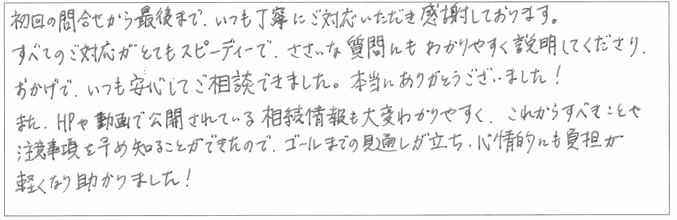 初回の問合せから最後まで、いつも丁寧にご対応いただき感謝しております。
すべてのご対応がとてもスピーディーで、ささいな質問にもわかりやすく説明してくださり、
おかげで、いつも安心してご相談できました。本当にありがとうございました!
また、HPや動画で公開されている相続情報も大変わかりやすく、これからすべきことや
注意事項を早め知ることができたので、ゴールまでの見通しが立ち、心情的にも負担が
軽くなり助かりました!